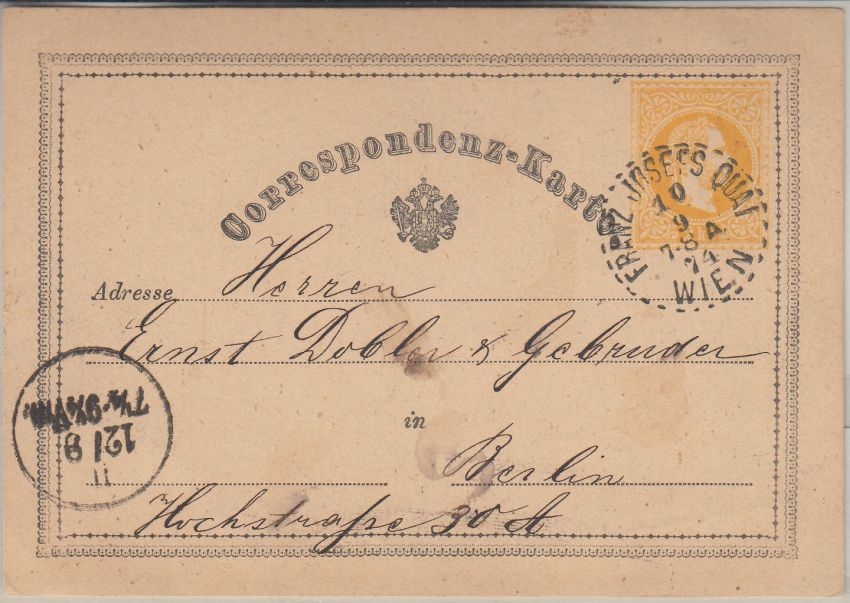 Correspondenz-Karte
FRANZ JOSEFS QUAI
10
9
8 A
74
WIEN
Adresse Herren
Ernst Dobler & Gebruder
in
Berlin
Hochstraße 30 A
II
12/9
7½-9¼ Vm.